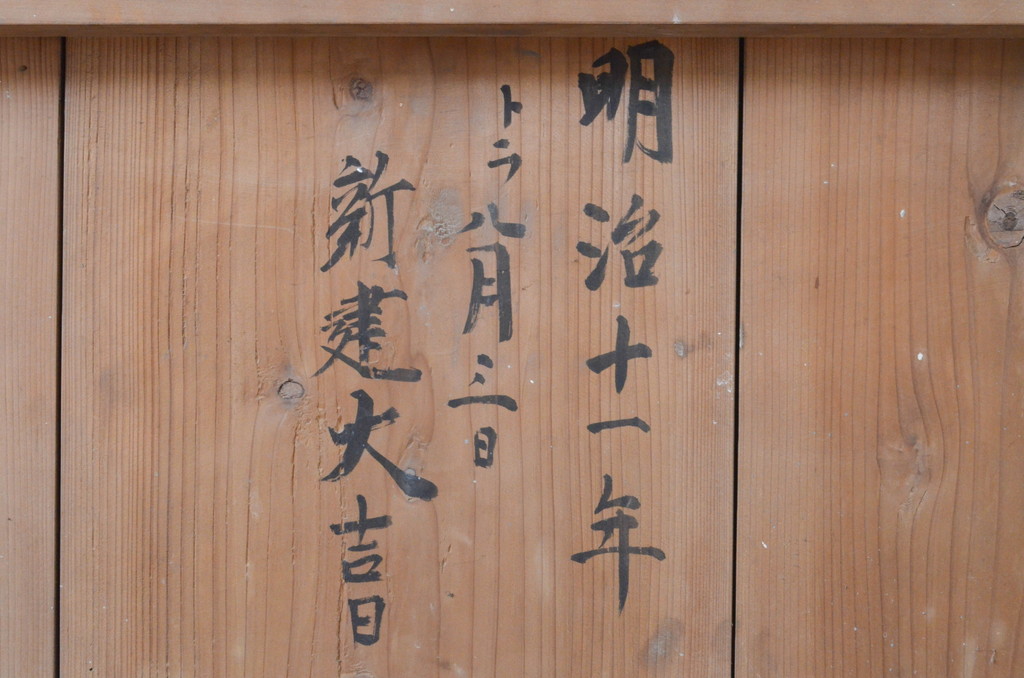 明治十一年
トラ八月三日
新建大吉日